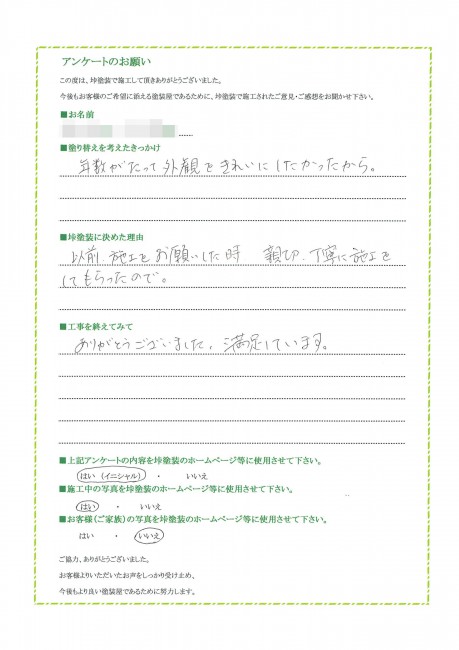 アンケートのお願い
この度は、垰塗装で施工して頂きありがとうございました。
今後もお客様のご希望に添える塗装屋であるために、垰塗装で施工されたご意見・ご感想をお聞かせ下さい。
■お名前
■塗り替えを考えたきっかけ
年数がたって外観をきれいにしたかったから。
■垰塗装に決めた理由
以前、施工をお願いした時 親切、丁寧に施工を
してもらったので。
■工事を終えてみて
ありがとうございました。満足しています。
■上記アンケートの内容を垰塗装のホームページ等に使用させて下さい。
はい（イニシャル） ・ いいえ
■施工中の写真を垰塗装のホームページ等に使用させて下さい。
はい ・ いいえ
■お客様（ご家族）の写真を垰塗装のホームページ等に使用させて下さい。
はい ・ いいえ
ご協力、ありがとうございました。
お客様よりいただいたお声をしっかり受け止め、
今後もより良い塗装屋であるために努力します。